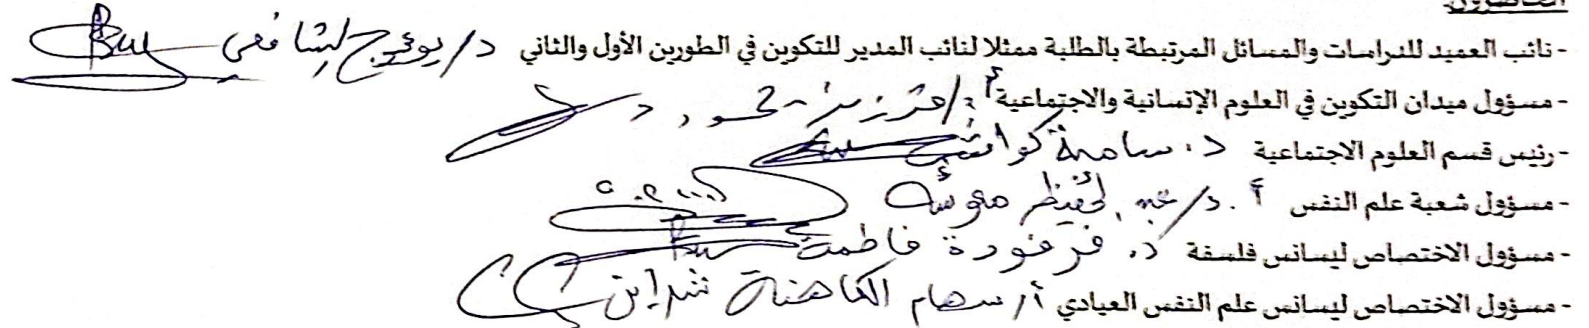 الحاضرون:
- نائب العميد للدراسات والمسائل المرتبطة بالطلبة ممثلا لنائب المدير للتكوين في الطورين الأول والثاني د/ بوعروج لشافعي
- مسؤول ميدان التكوين في العلوم الإنسانية والاجتماعية أ.د/
- رئيس قسم العلوم الاجتماعية د. سامية كواشي
- مسؤول شعبة علم النفس أ.د/ عبد الحفيظ معوشة
- مسؤول الاختصاص ليسانس فلسفة د. فرفودة فاطمة
- مسؤول الاختصاص ليسانس علم النفس العيادي أ/ سهام الكاهنة شرابن